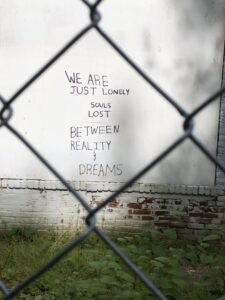 WE ARE
JUST LONELY
SOULS
LOST
BETWEEN
REALITY
&
DREAMS